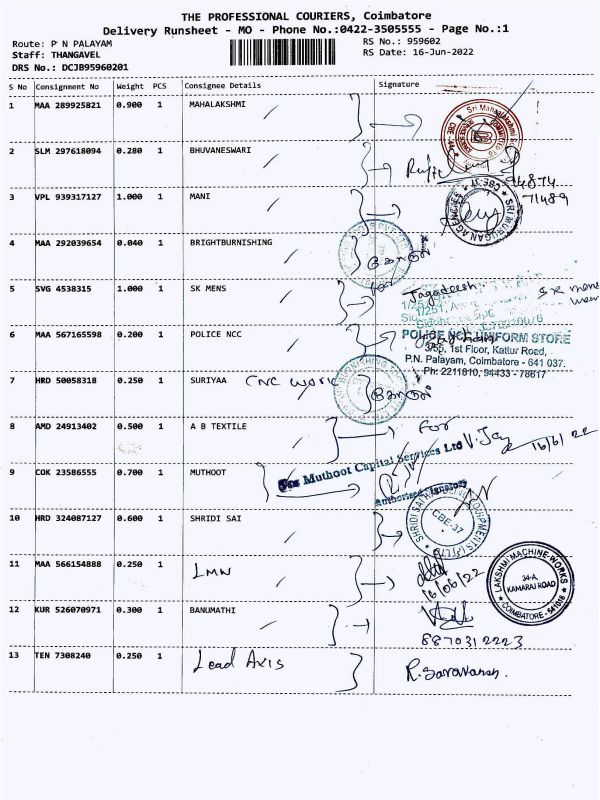 THE PROFESSIONAL COURIERS, Coimbatore
Delivery Runsheet - MO - Phone No.:0422-3505555 - Page No.:1
Route: P N PALAYAM
Staff: THANGAVEL
DRS No.: DCJB95960201
RS No.: 959602
RS Date: 16-Jun-2022
S No Consignment No Weight PCS Consignee Details Signature
1 MAA 289925821 0.900 1 MAHALAKSHMI
Sri Mahalakshmi
2 SLM 297618094 0.280 1 BHUVANESWARI
94874
71489
3 VPL 939317127 1.000 1 MANI
SRI MURUGAN AGENCIES CBE-37
4 MAA 292039654 0.040 1 BRIGHTBURNISHING
5 SVG 4538315 1.000 1 SK MENS
for Jagadeesh
SK mens wear
6 MAA 567165598 0.200 1 POLICE NCC
POLICE NCC UNIFORM STORE
3/55, 1st Floor, Kattur Road,
P.N. Palayam, Coimbatore - 641 037.
Ph: 2211810, 94433 - 78617
7 HRD 50058318 0.250 1 SURIYAA CNC WORK
8 AMD 24913402 0.500 1 A B TEXTILE
For
V. Jay 16/6/22
9 COK 23586555 0.700 1 MUTHOOT
For Muthoot Capital Services Ltd
Authorised Signatory
10 HRD 324087127 0.600 1 SHRIDI SAI
CBE-37
11 MAA 566154888 0.250 1 LMW
16/06/22
LAKSHMI MACHINE WORKS
34-A,
KAMARAJ ROAD
COIMBATORE - 641018
12 KUR 526070971 0.300 1 BANUMATHI
8870312223
13 TEN 7308240 0.250 1 Lead Axis
R. Saravanan.